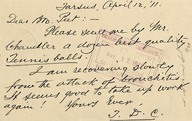 Tarsus, April 12, '11.
Dear Mr. Peet:-
Please send me by Mr.
Chambler a dozen best quality
Tennis balls.
I am recovering slowly
from the attack of bronchitis
It seems good to take up work
again.
Yours Ever
T. D. C.